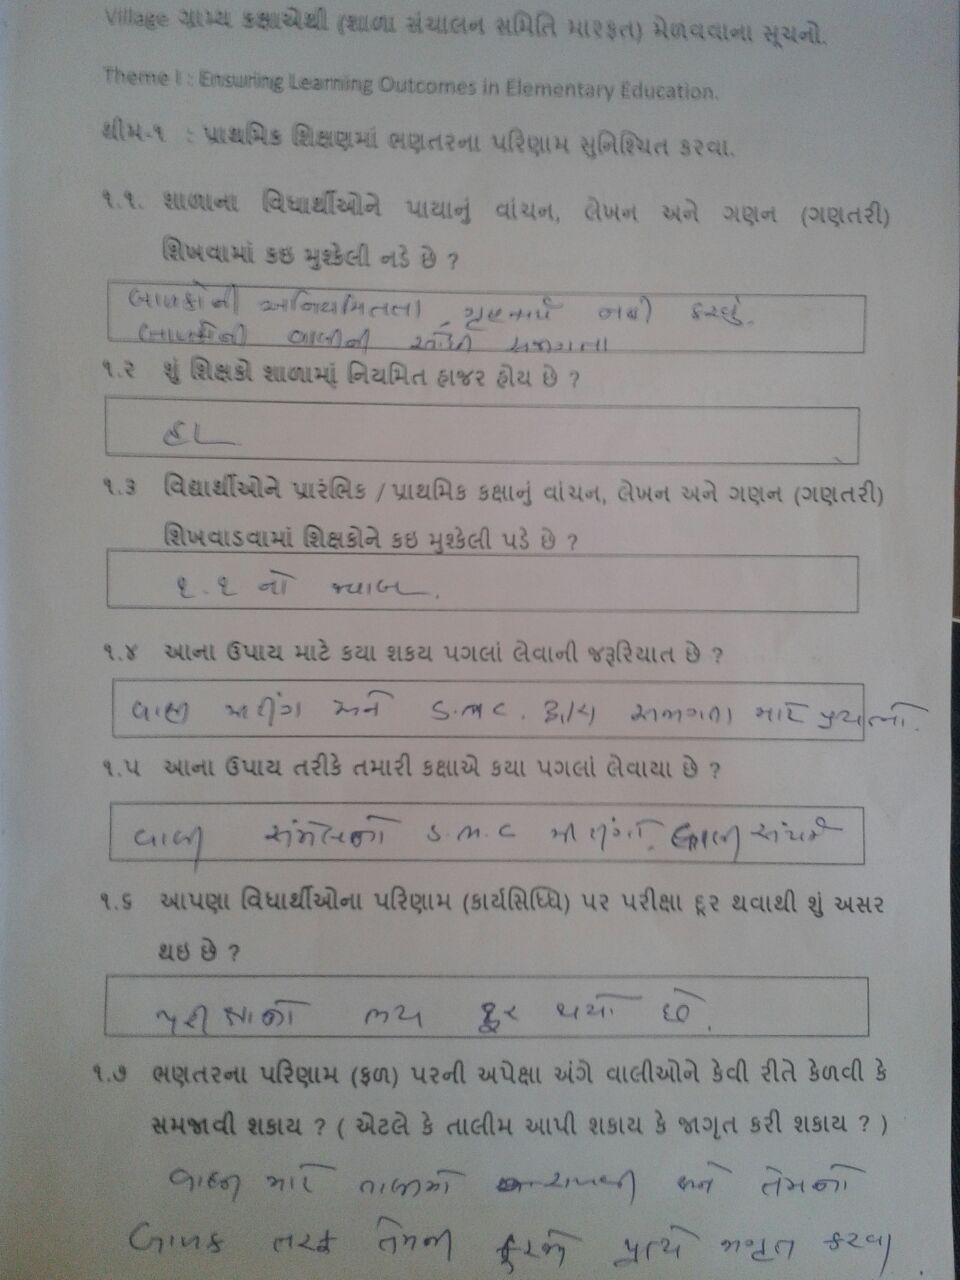 Village ગ્રામ્ય કક્ષાએથી (શાળા સંચાલન સમિતિ મારફત) મેળવવાના સૂચનો.
Theme I : Ensuring Learning Outcomes in Elementary Education.
થીમ-૧ : પ્રાથમિક શિક્ષણમાં ભણતરના પરિણામ સુનિશ્ચિત કરવા.
૧.૧. શાળાના વિધાર્થીઓને પાયાનું વાંચન, લેખન અને ગણન (ગણતરી)
શિખવામાં કઇ મુશ્કેલી નડે છે ?
બાળકોની અનિયમિતતા, ગૃહકાર્ય નથી કરવું.
બાળકોની વાલીની ઓછી સજાગતા
૧.૨ શું શિક્ષકો શાળામાં નિયમિત હાજર હોય છે ?
હા
૧.૩ વિદ્યાર્થીઓને પ્રારંભિક / પ્રાથમિક કક્ષાનું વાંચન, લેખન અને ગણન (ગણતરી)
શિખવાડવામાં શિક્ષકોને કઇ મુશ્કેલી પડે છે ?
૧.૧ નો જવાબ.
૧.૪ આના ઉપાય માટે કયા શકય પગલાં લેવાની જરૂરિયાત છે ?
વાલી મીટીંગ અને S.M.C. દ્વારા સજાગતા માટે પ્રયત્નો.
૧.૫ આના ઉપાય તરીકે તમારી કક્ષાએ કયા પગલાં લેવાયા છે ?
વાલી સંમેલનો S.M.C મીટીંગો, વાલી સંપર્ક
૧.૬ આપણા વિધાર્થીઓના પરિણામ (કાર્યસિધ્ધિ) પર પરીક્ષા દૂર થવાથી શું અસર
થઇ છે ?
પરીક્ષાનો ભય દૂર થયો છે.
૧.૭ ભણતરના પરિણામ (ફળ) પરની અપેક્ષા અંગે વાલીઓને કેવી રીતે કેળવી કે
સમજાવી શકાય ? ( એટલે કે તાલીમ આપી શકાય કે જાગૃત કરી શકાય ? )
વાલી માટે તાલીમો અને તેમનો
બાળક તરફ તેમની ફરજો પ્રત્યે જાગૃત કરવા